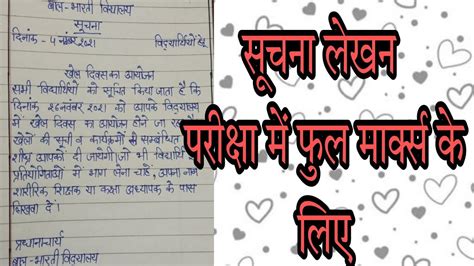 बाल-भारती विद्यालय
सूचना
दिनांक - 4 नवंबर 2021 विद्यार्थियों हेतु
खेल दिवस का आयोजन
सभी विद्यार्थियों को सूचित किया जाता है कि
दिनांक 26 नवंबर 2021 को आपके विद्यालय
में खेल दिवस का आयोजन होने जा रहा है
खेलों की सूची व कार्यक्रमों से सम्बंधित
शीघ्र आपको दी जायेगी, जो भी विद्यार्थी
प्रतियोगिताओं में भाग लेना चाहें, अपना नाम
शारीरिक शिक्षक या कक्षा अध्यापक के पास
लिखवा दें।
प्रधानाचार्य
बाल-भारती विद्यालय
सूचना लेखन
परीक्षा में फुल मार्क्स के
लिए